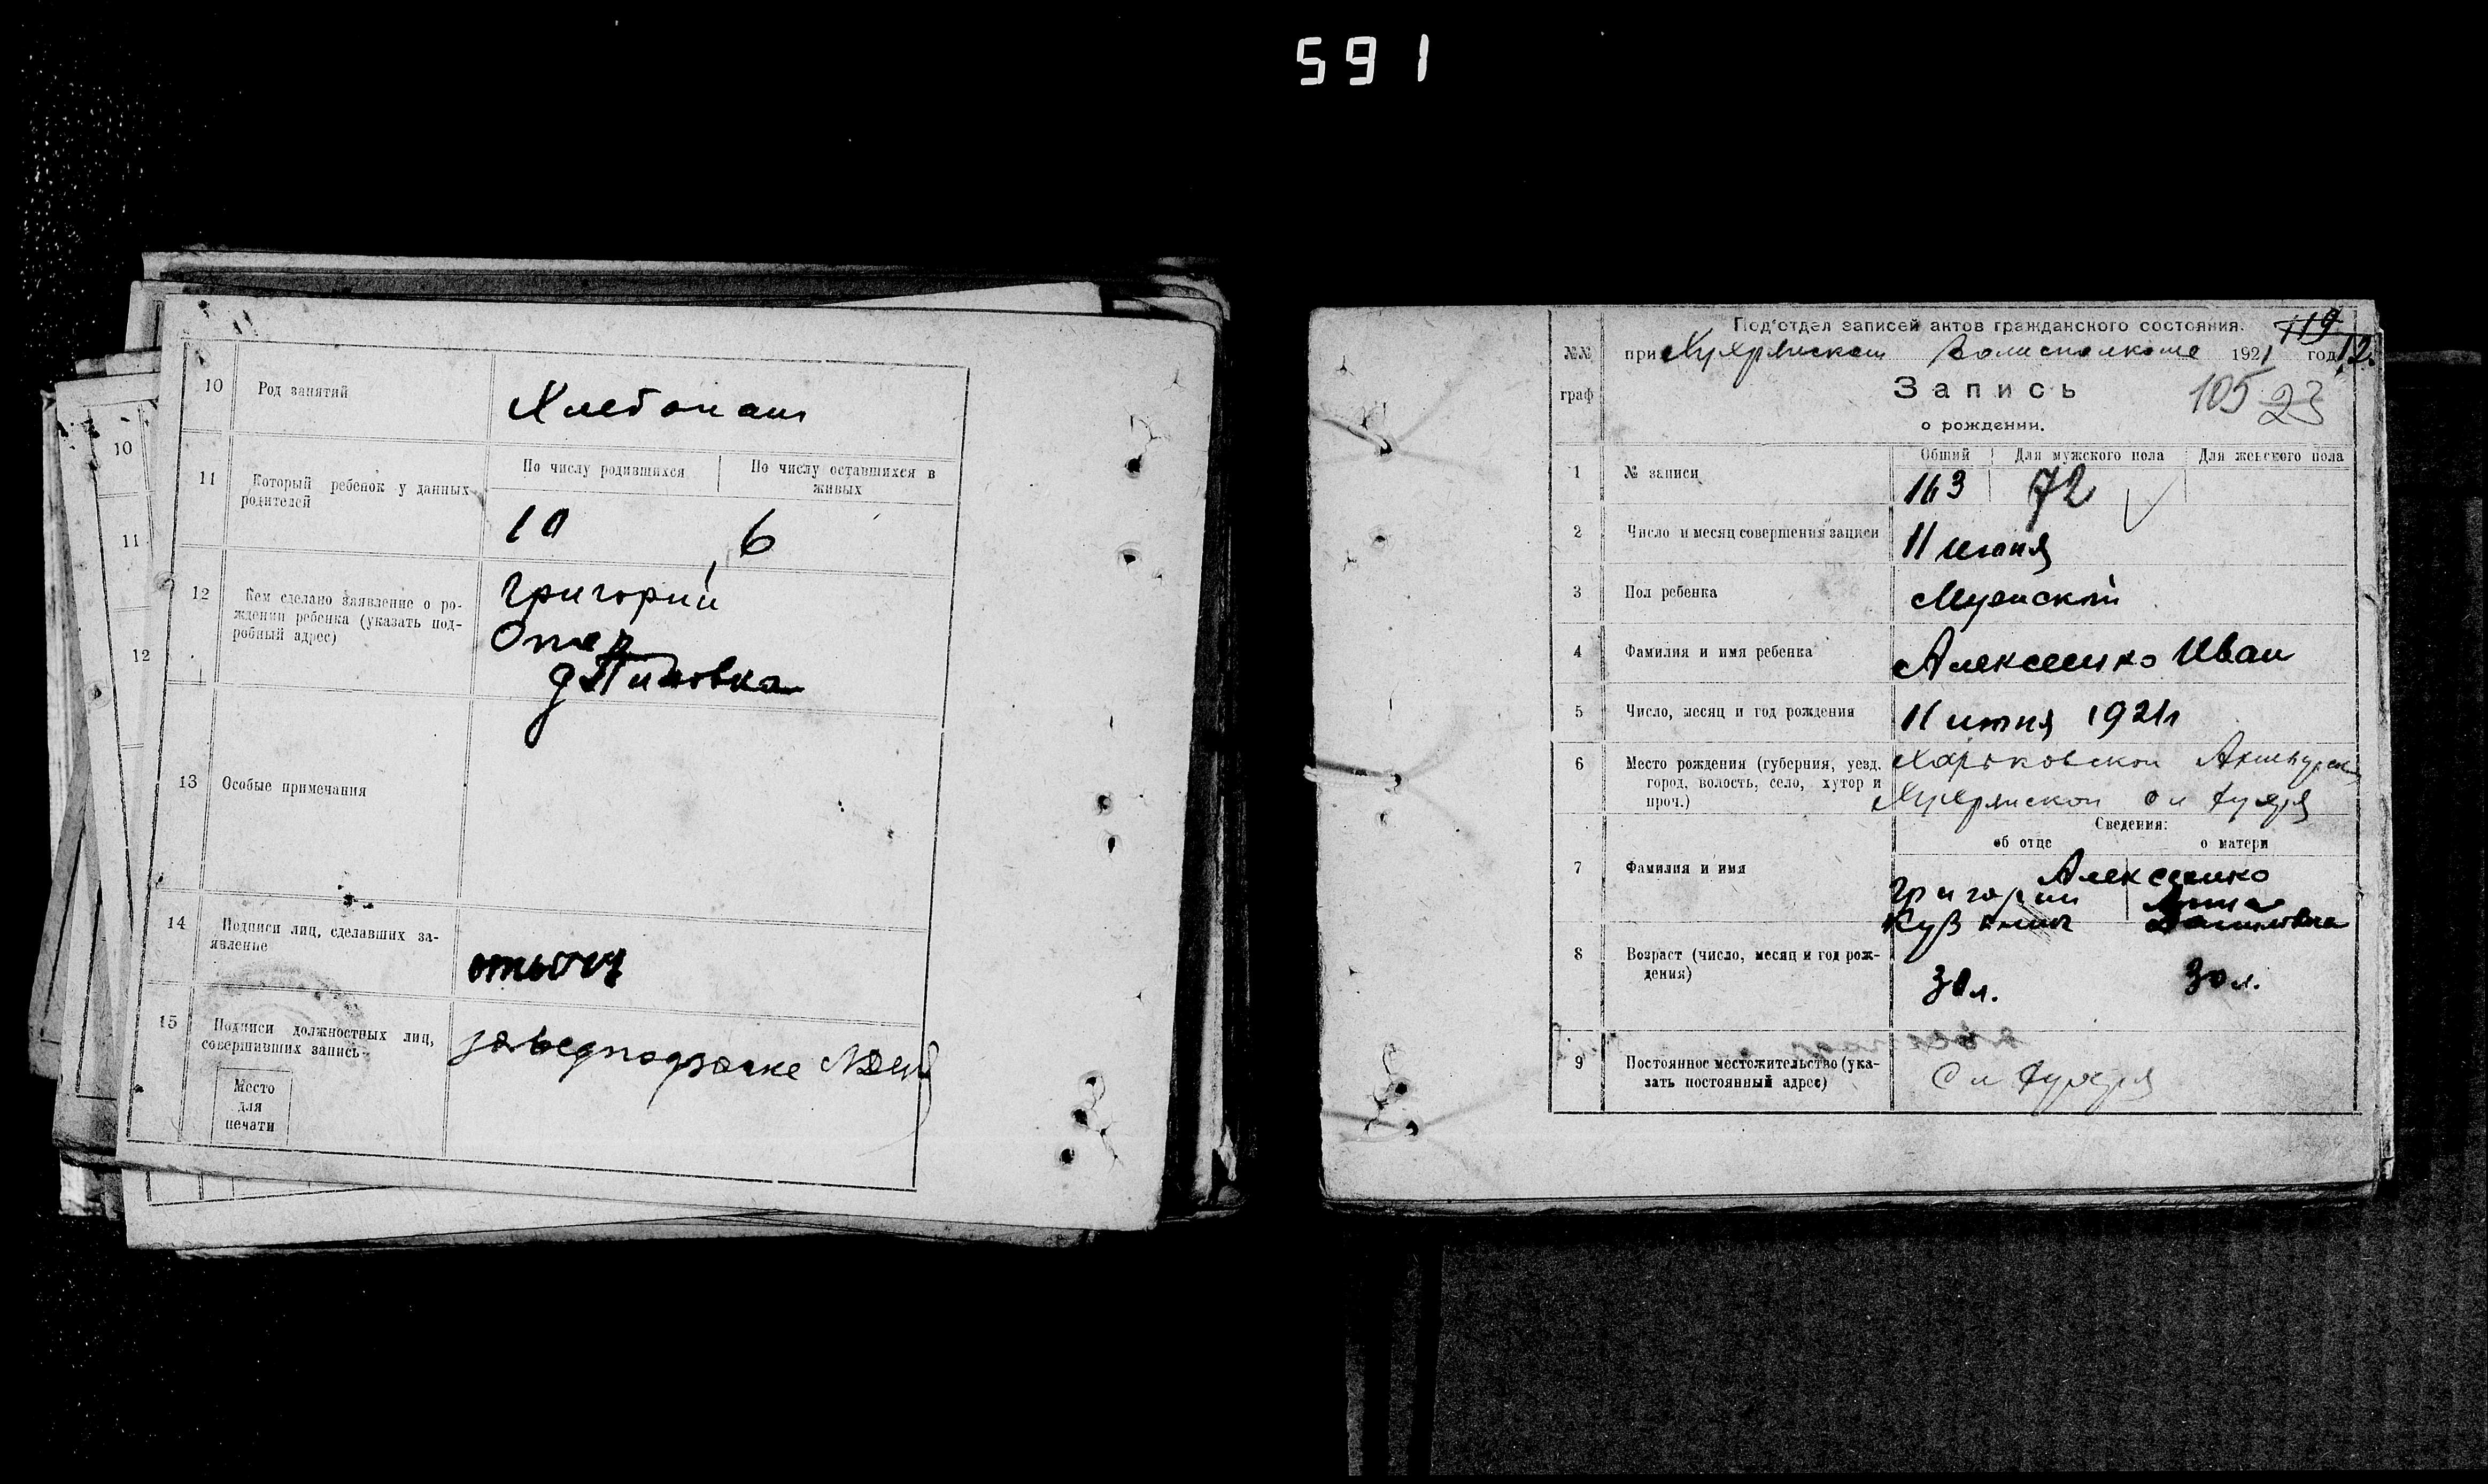 591
10
11
12
10 Род занятий Хлебопаш
11 Который ребенок у данных родителей
По числу родившихся По числу оставшихся в живых
10 6
12 Кем сделано заявление о ро-
ждении ребенка (указать под-
робный адрес)
Григорий
Отец
13 Особые примечания
14 Подписи лиц, сделавших за-
явление
15 Подписи должностных лиц,
совершивших запись
Место
для
печати
Под'отдел записей актов гражданского состояния.
119
№№ при Волисполкоме 1921 год 12.
граф
Запись
105 23
о рождении.
Общий Для мужского пола Для женского пола
1 № записи 163 72
2 Число и месяц совершения записи 11 июня
3 Пол ребенка Мужской
4 Фамилия и имя ребенка Алексеенко Иван
5 Число, месяц и год рождения 11 июня 1921 г
6 Место рождения (губерния, уезд,
город, волость, село, хутор и
проч.)
Харьковской
Сведения:
об отце о матери
7 Фамилия и имя
Алексеенко
Григорий Анна
Кузьмич Даниловна
8 Возраст (число, месяц и год рож-
дения)
30 л. 30 л.
9 Постоянное местожительство (ука-
зать постоянный адрес)